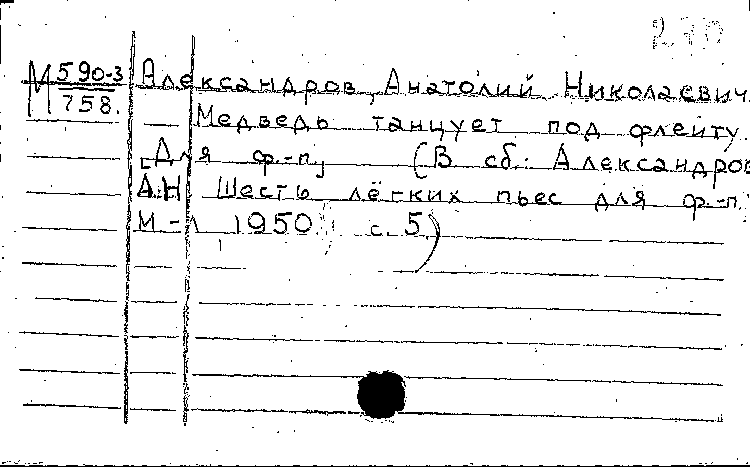 270
М 590-3 Александров, Анатолий Николаевич.
758. Медведь танцует под флейту.
[Для ф.-п.] (В сб.: Александров
А.Н Шесть лёгких пьес для ф.-п.
М-Л 1950. с. 5)